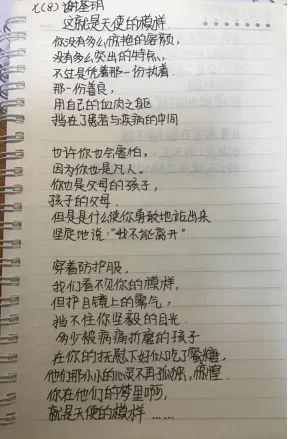 七(8) 谢基玥
这就是天使的模样
你没有多么惊艳的容颜,
没有多么突出的特点,
不过是凭着那一份执着
那一份善良,
用自己的血肉之躯
挡在了患者与疾病的中间
也许你也会害怕,
因为你也是凡人.
你也是父母的孩子,
孩子的父母.
但是是什么使你勇敢地站出来
坚定地说:“我不能离开”.
穿着防护服,
我们看不见你的模样,
但护目镜上的雾气,
挡不住你坚毅的目光.
多少被病痛折磨的孩子
在你的抚慰下好似吃了蜜糖,
他们那小小的心灵不再孤独,彷惶.
你在他们的梦里啊,
就是天使的模样……